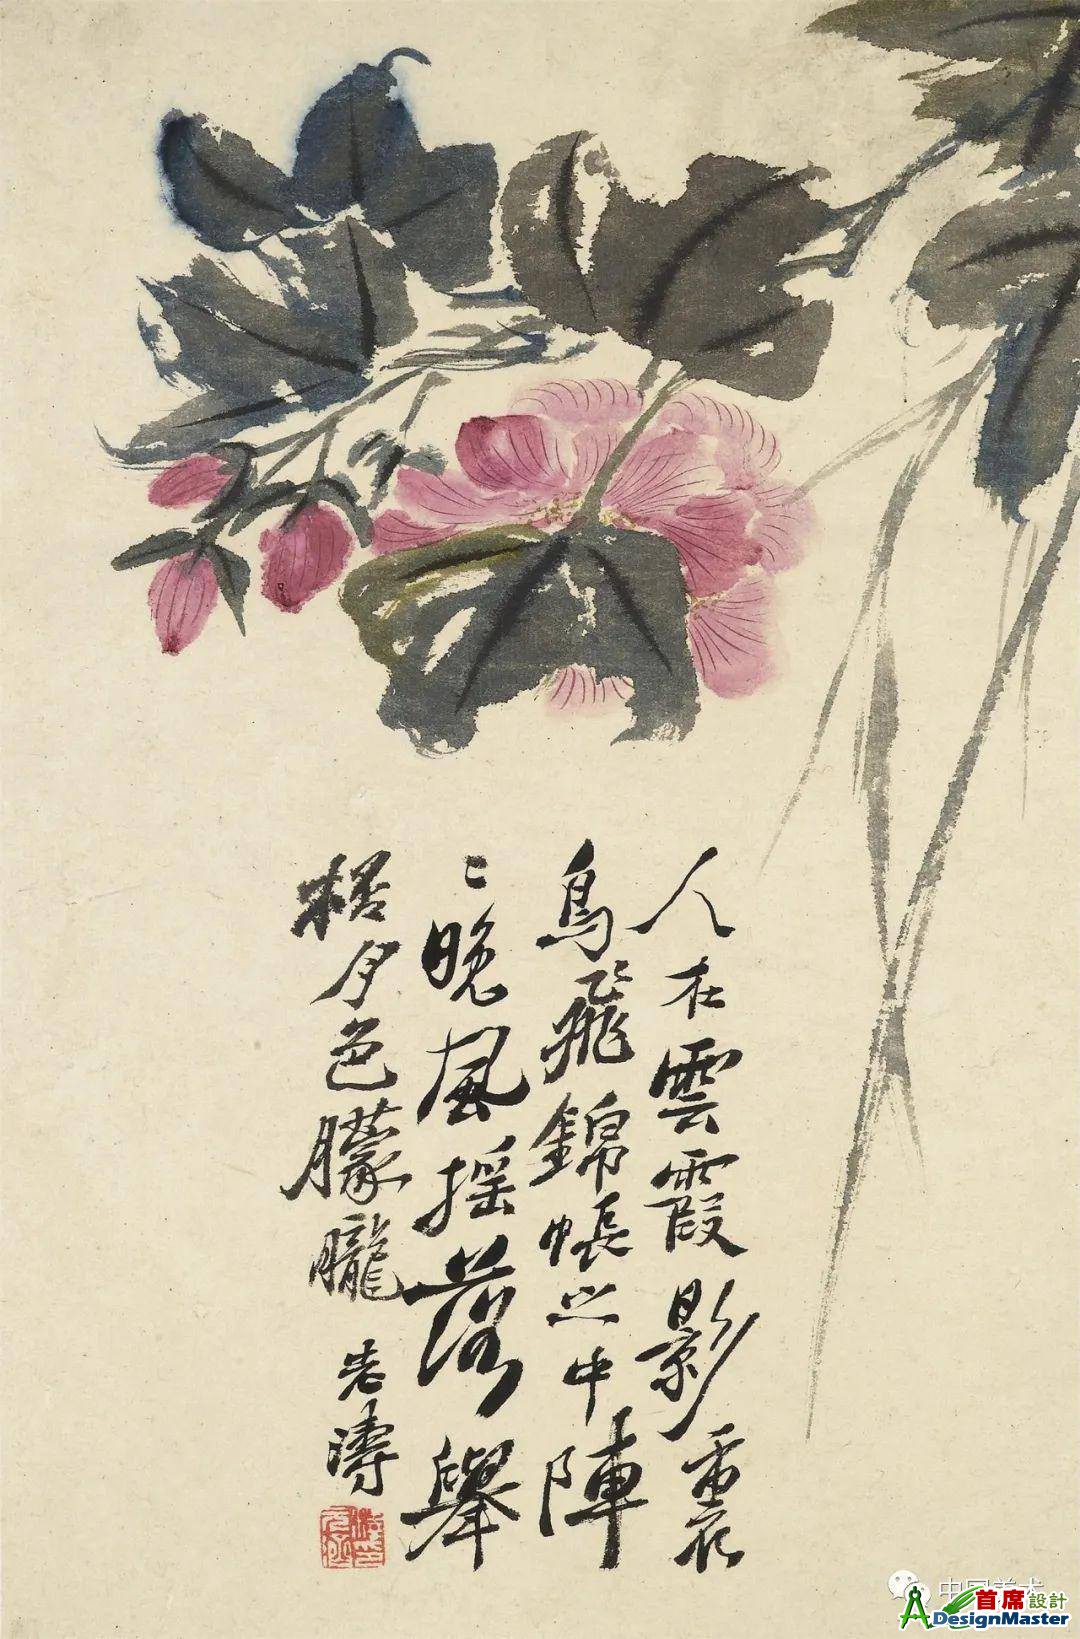 人在雲霞影裏
鳥飛錦帳之中陣
〻晚風搖落舉
桮月色朦朧
老濤
中国美术
首席設計
DesignMaster